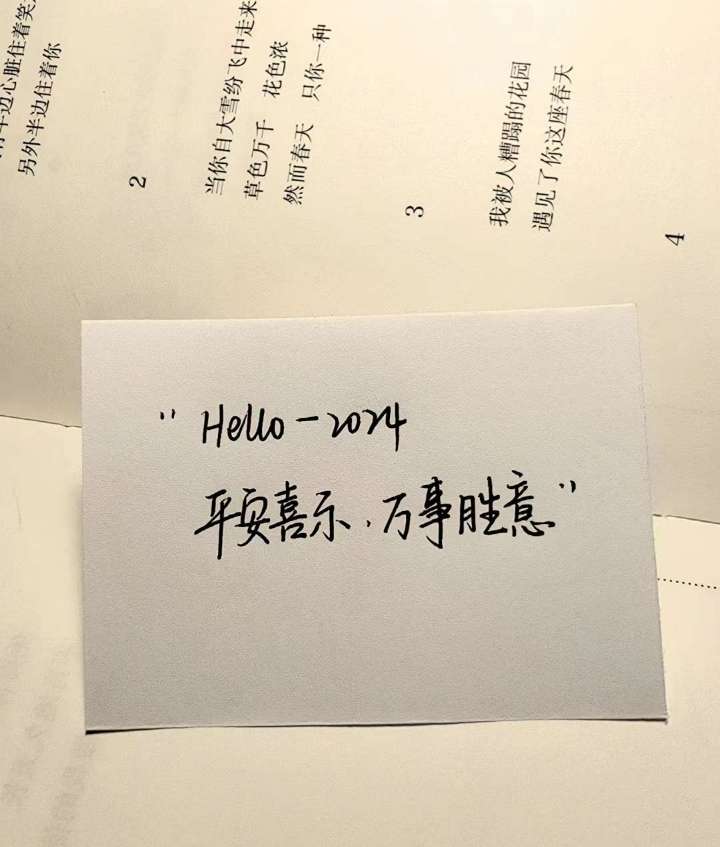 另外半边住着你
2
当你自大雪纷飞中走来
草色万千 花色浓
然而春天 只你一种
3
我被人糟蹋的花园
遇见了你这座春天
4
"Hello-2024
平安喜示,万事胜意"